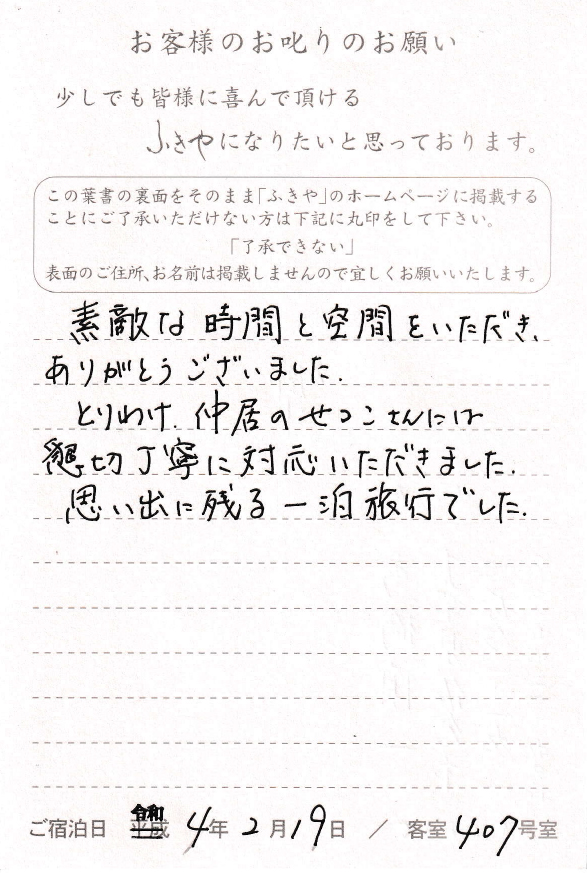 お客様のお叱りのお願い
少しでも皆様に喜んで頂ける
ふきやになりたいと思っております。
この葉書の裏面をそのまま「ふきや」のホームページに掲載する
ことにご了承いただけない方は下記に丸印をして下さい。
「了承できない」
表面のご住所、お名前は掲載しませんので宜しくお願いいたします。
素敵な時間と空間をいただき、
ありがとうございました。
とりわけ、仲居のせつこさんには
懇切丁寧に対応いただきました。
思い出に残る一泊旅行でした。
ご宿泊日 平成 令和 4年 2月19日 / 客室407号室